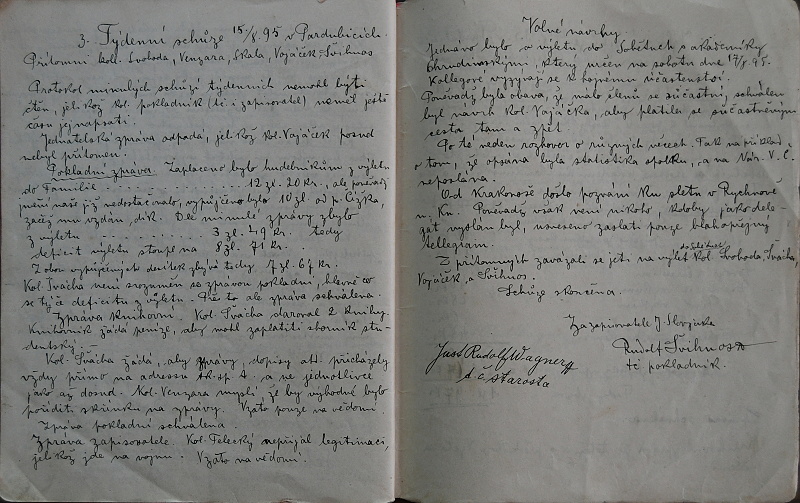 3. Týdenní schůze 15/8. 95 v Pardubicích.
Přítomni koll. Svoboda, Venzara, Skála, Vojáček, Švihnos
Protokol minulých schůzí týdenních nemohl býti
čten, jelikož kol. pokladník (tč. i zapisovatel) neměl ještě
času jej napsati.
Jednatelská zpráva odpadá, jelikož kol. Vojáček posud
nebyl přítomen.
Pokladní zpráva. Zaplaceno bylo hudebníkům z výletu
do Familie . . . . . . . . . . 12 zl. 20 kr., ale poněvadž
jmění naše jíž nedostačovalo, vypůjčeno bylo 10 zl. od p. Čížka,
začež mu vzdán dík. Dle minulé zprávy zbylo
z výletu . . . . . . . . 3 zl. 49 kr. tedy
deficit výletu stoupl na 8 zl. 71 kr.
Z obou vypůjčených desítek zbývá tedy 7 zl. 67 kr.
Kol. Švácha není srozuměn se zprávou pokladní, hlavně co
se týče deficitu z výletu. Na to ale zpráva schválena.
Zpráva knihovní. Kol. Švácha daroval 2 knihy.
Knihovník žádá peníze, aby mohl zaplatiti sborník stu-
dentský. —
Kol. Švácha žádá, aby zprávy, dopisy atd. přicházely
vždy přímo na adressu Ak. sp. A. a ne jednotlivce
jako až dosud. Kol. Venzara myslí, že by výhodné bylo
pořídit skřínku na zprávy. Vzato pouze na vědomí.
Zpráva pokladní schválena.
Zpráva zapisovatele. Kol. Felecký nepřijal legitimaci,
jelikož jde na vojnu. Vzato na vědomí.
Volné návrhy.
Jednáno bylo o výletu do Sobětuch s akademiky
chrudimskými, který určen na sobotu dne 17/8. 95.
Kollegové vyzývají se k hojnému účastenství.
Poněvadž byla obava, že málo členů se súčastní, schválen
byl návrh kol. Vojáčka, aby platila se súčastněným
cesta tam a zpět.
Po té veden rozhovor o různých věcech. Tak na příklad
o tom, že opsána byla statistika spolku, a na Nár. V. Č.
neposlána.
Od Krakonoše došlo pozvání ku sletu v Rychnově
n. Kn. Poněvadž však není nikoho, kdoby jako dele-
gát vyslán byl, usneseno zaslati pouze blahopřejný
tellegram.
Z přítomných zavázali se jeti na výlet do Sobětuch kol. Svoboda, Švácha,
Vojáček, a Švihnos.
Schůze skončena.
Za zapisovatele
Rudolf Švihnos
tč pokladník.
Just Rudolf Wagner
t. č. starosta